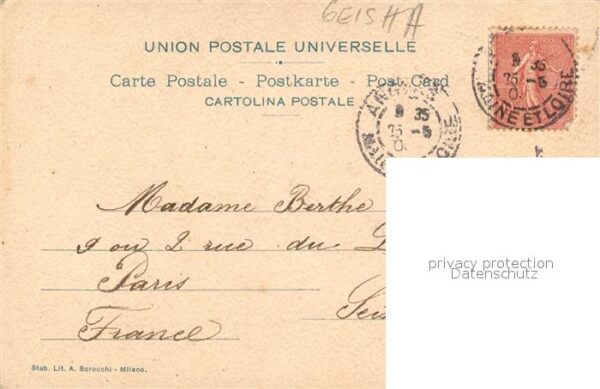 GEISHA
UNION POSTALE UNIVERSELLE
Carte Postale - Postkarte - Post Card
CARTOLINA POSTALE
9 35
25 -5
MAINE ET LOIRE
9 35
25 -5
Madame Berthe
9 ou 2 rue du
Paris
France
privacy protection
Datenschutz
Stab. Lit. A. Scrocchi - Milano.